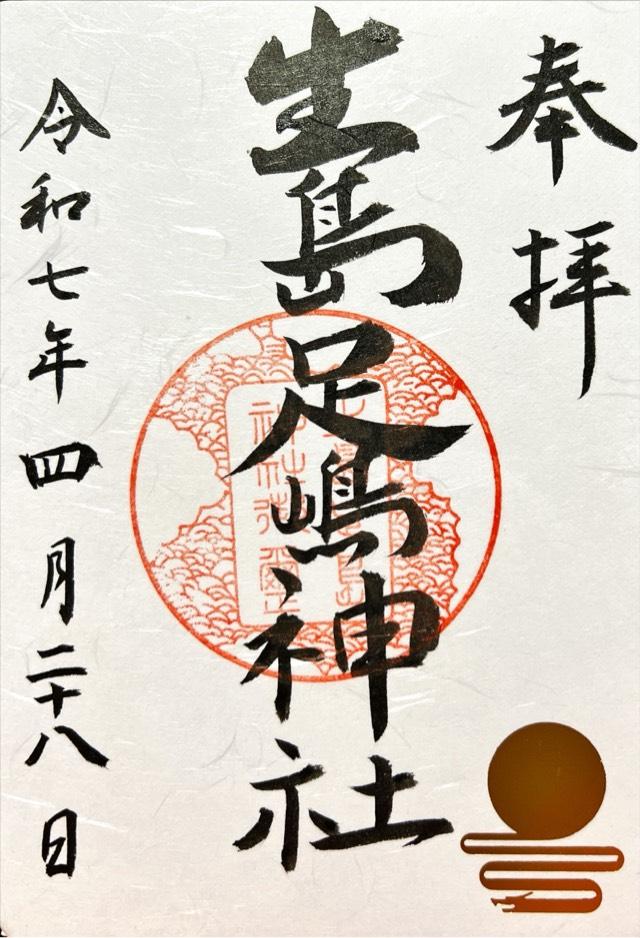 奉拝
生島足嶋神社
令和七年四月二十八日